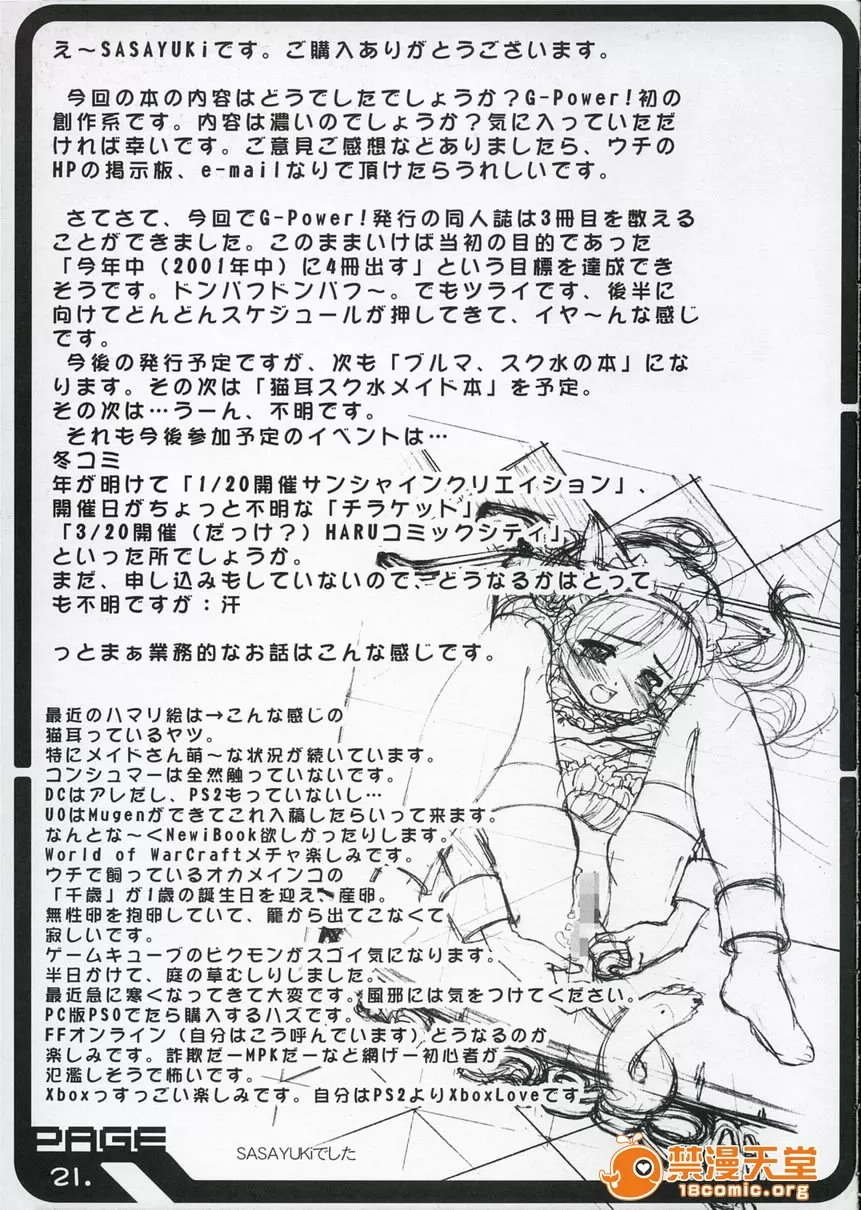 え～SASAYUKiです。ご購入ありがとうございます。
今回の本の内容はどうでしたでしょうか？G-Power!初の
創作系です。内容は濃いのでしょうか？気に入っていただ
ければ幸いです。ご意見ご感想などありましたら、ウチの
HPの掲示板、e-mailなりで頂けたらうれしいです。
さてさて、今回でG-Power!発行の同人誌は3冊目を数える
ことができました。このままいけば当初の目的であった
「今年中（2001年中）に4冊出す」という目標を達成でき
そうです。ドンパフドンパフ～。でもツライです、後半に
向けてどんどんスケジュールが押してきて、イヤ～んな感じ
です。
今後の発行予定ですが、次も「ブルマ、スク水の本」にな
ります。その次は「猫耳スク水メイド本」を予定。
その次は…うーん、不明です。
それも今後参加予定のイベントは…
冬コミ
年が明けて「1/20開催サンシャインクリエイション」、
開催日がちょっと不明な「チラケット」
「3/20開催（だっけ？）HARUコミックシティ」
といった所でしょうか。
まだ、申し込みもしていないので、どうなるかはとって
も不明ですが：汗
っとまぁ業務的なお話はこんな感じです。
最近のハマリ絵は→こんな感じの
猫耳っているヤツ。
特にメイドさん萌～な状況が続いています。
コンシュマーは全然触っていないです。
DCはアレだし、PS2もっていないし…
UOはMugenができてこれ入稿したらいって来ます。
なんとな～くNewiBook欲しかったりします。
World of WarCraftメチャ楽しみです。
ウチで飼っているオカメインコの
「千歳」が1歳の誕生日を迎え、産卵。
無性卵を抱卵していて、籠から出てこなくて
寂しいです。
ゲームキューブのピクモンがスゴイ気になります。
半日かけて、庭の草むしりしました。
最近急に寒くなってきて大変です。風邪には気をつけてください。
PC版PSOでたら購入するハズです。
FFオンライン（自分はこう呼んでいます）どうなるのか
楽しみです。詐欺だーMPKだーなど網げー初心者が
氾濫しそうで怖いです。
Xboxっすっごい楽しみです。自分はPS2よりXboxLoveです
PAGE
21.
SASAYUKiでした
禁漫天堂
18comic.org